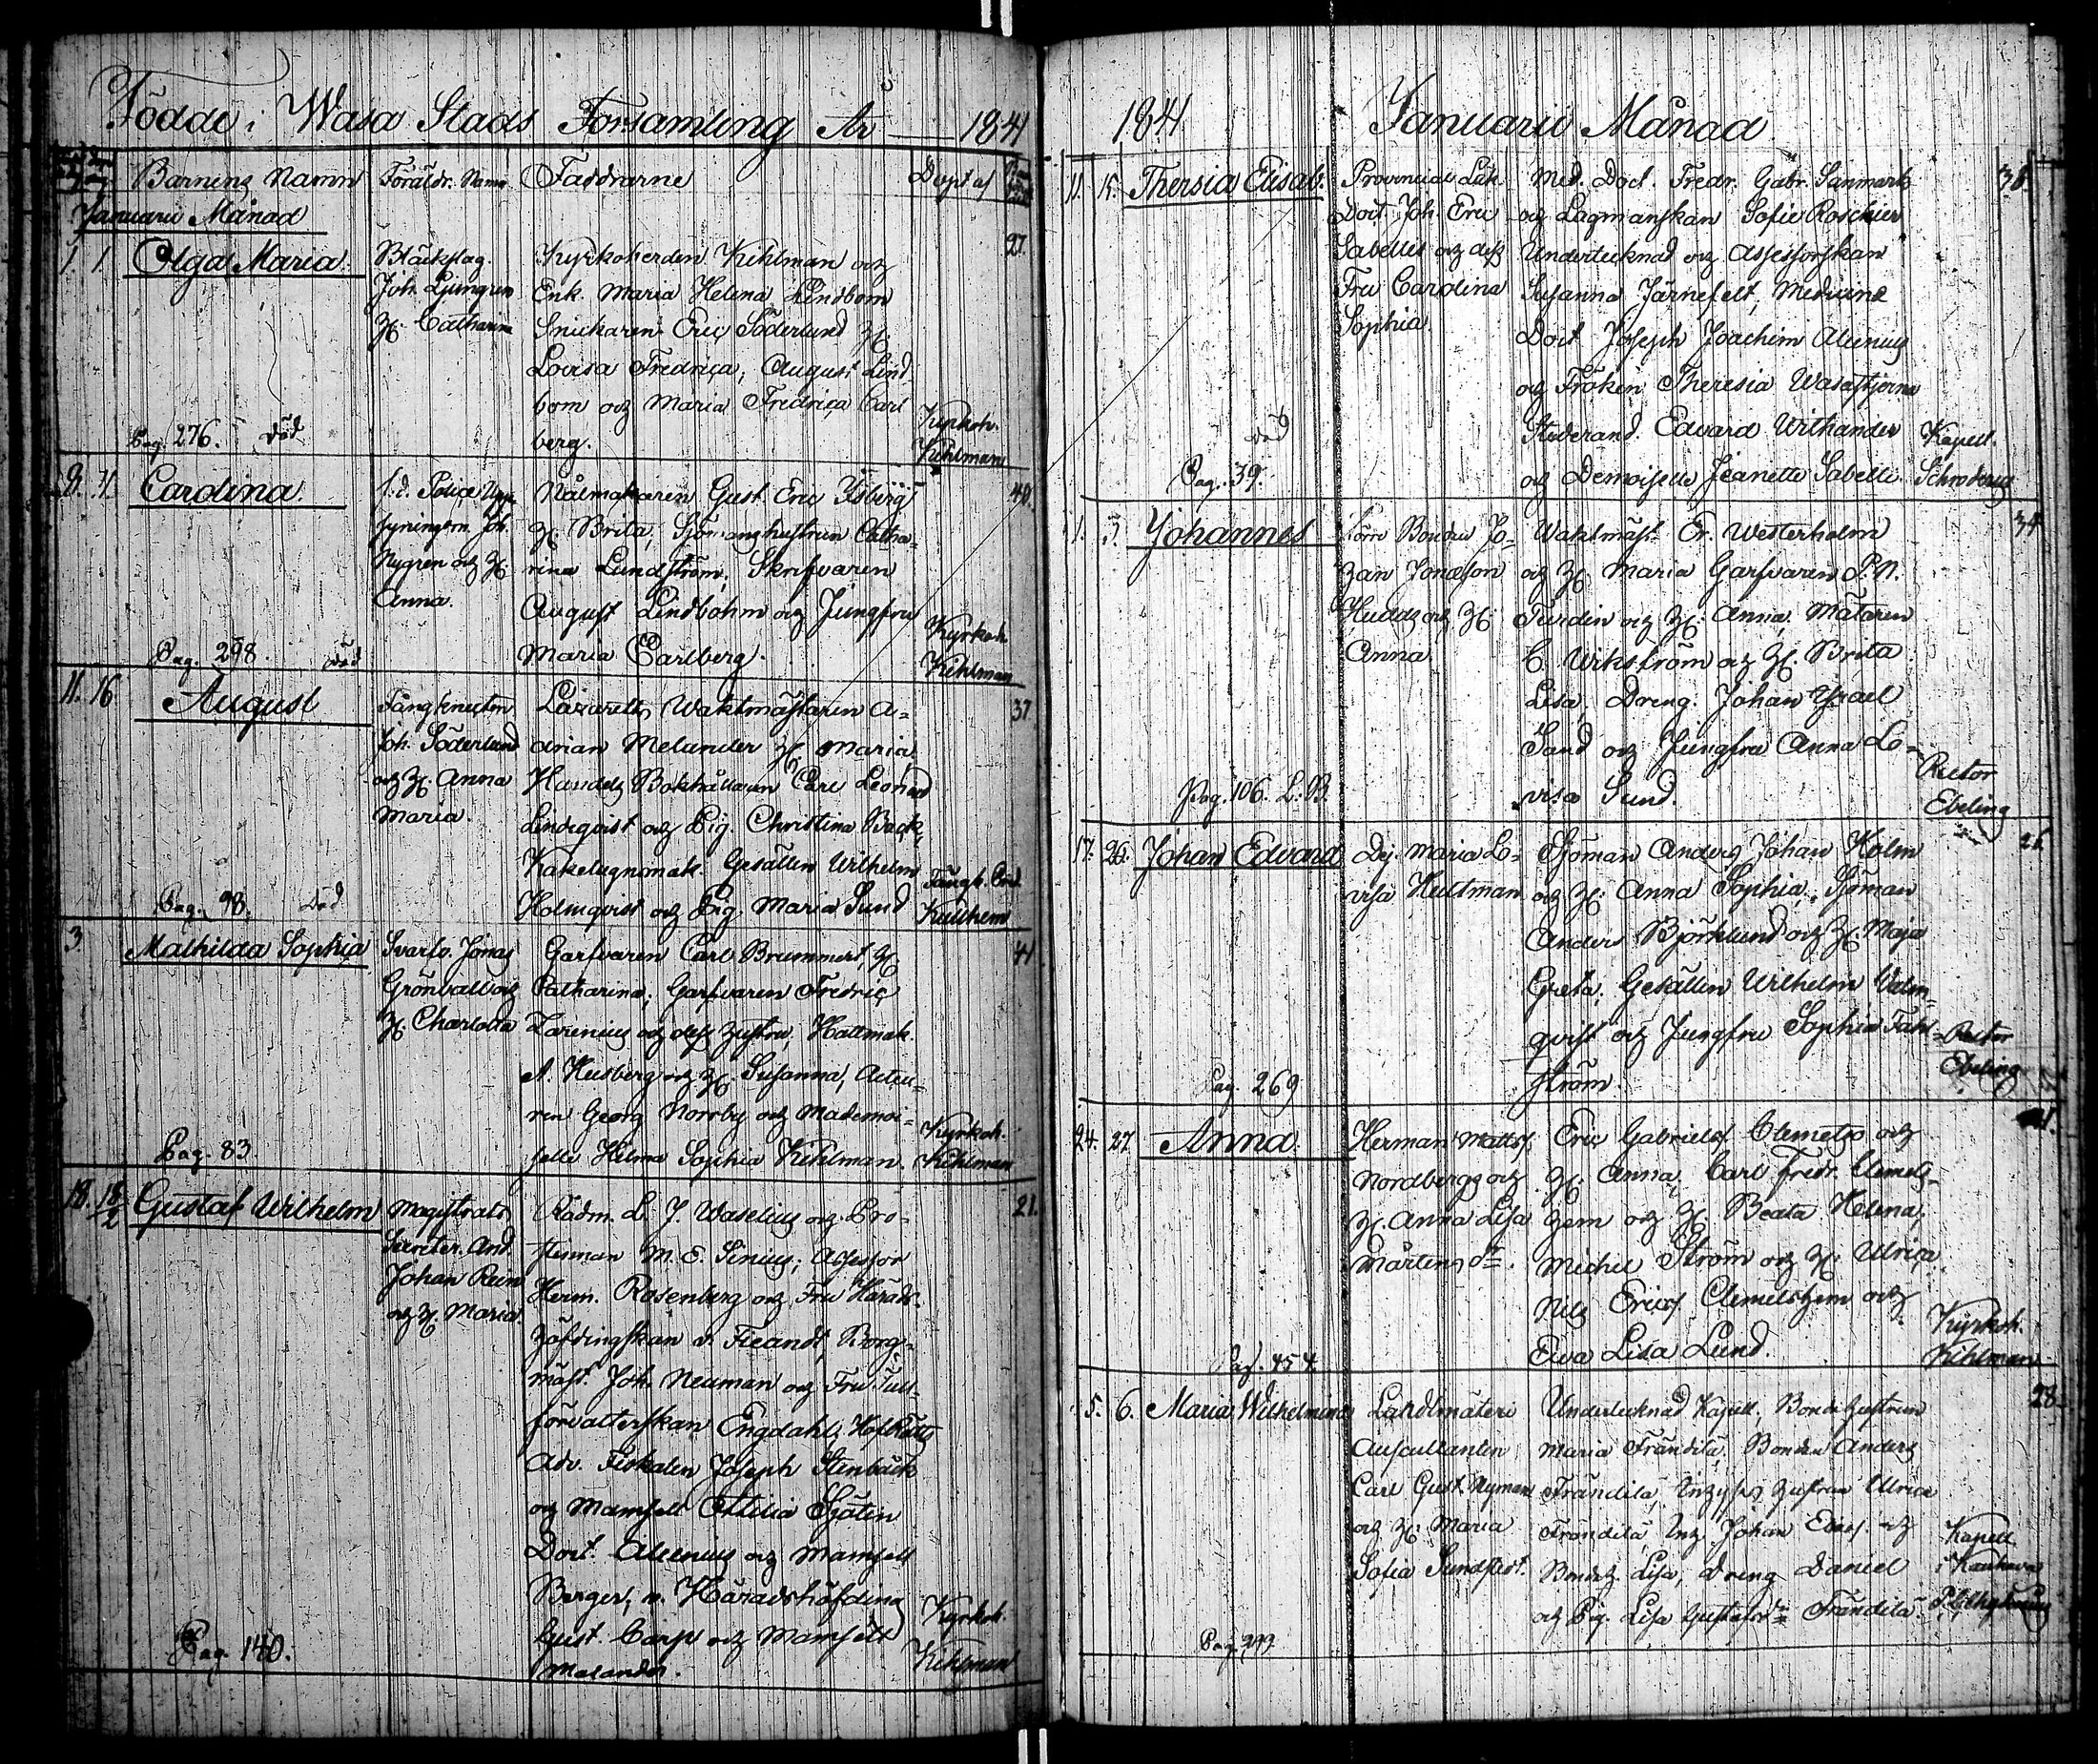 Födde i Wasa Stads Församling År 1841
Barnens Namn Föräldr. Namn Faddrarne Döpt af
Januarii Månad
1. 1 Olga Maria
Pag. 276. död
Bläckslag.
Joh. Ljungren
H. Catharina
Kyrkoherden Kihlman och
Enk. Maria Helena Lindbom
Snickaren Eric Söderlund H.
Lovisa Fredrica, August Lind
bom och Maria Fredrica Carl
berg.
Kyrkoh.
Kihlman
27.
Carolina
Pag. 298. död
f.d. Police Upp
syningsm. Joh.
Nygren och H.
Anna.
Nålmakaren Gust. Eric Ysberg
H. Brita, Sjömanshustrun Catha-
rina Lundström, Skrifvaren
August Lindbohm och Jungfru
Maria Carlberg.
Kyrkoh.
Kihlman
40.
11. 16 August
Pag. 98. död
Fångknecten
Joh. Söderlund
och H. Anna
Maria.
Lazaretts Waktmästaren A-
drian Melander H. Maria
Handels Bokhållaren Carl Leonard
Lindqvist och Pig. Christina Back,
Kakelugnsmak. Gesällen Wilhelm
Holmqvist och Pig. Maria Sund
Kullhem
37
3. Mathilda Sophia
Pag. 83.
Svarfv. Jonas
Grönvall och
H. Charlotta
Garfvaren Carl Brummert, H.
Catharina, Garfvaren Fredric
Zarenius och dess hustru, Hattmak.
A. Husberg och H. Susanna, Actua-
rien Georg Norrby och Mademoi-
selle Hilma Sophia Kihlman.
Kyrkoh.
Kihlman
41
18. 18/2 Gustaf Wilhelm
Pag. 140.
Magistrats
Secreter. And.
Johan Rein
och H. Maria.
Rådm. L. J. Waselius och Pro-
stinnan M. E. Sinius; Assessor
Herm. Rosenberg och Fru Härads-
höfdingskan v. Fieandt, Borg-
mäst. Joh. Neuman och Fru Tull-
förvalterskan Engdahl, HofRätts
Adv. Fiskalen Joseph Stenbäck
och Mamsell Ottilia Sjölin
Doct. Alcenius och Mamsell
Berger, v. Häradshöfding
Gust. Carp och Mamsell
Malander.
Kyrkoh.
Kihlman
21.
1841 Januarii Månad
11. 15. Thersia Elisab.
död
Pag. 39.
Provincial Läk.
Doct. Joh. Eric
Sabelles och dess
Fru Carolina
Sophia.
Med. Doct. Fredr. Gabr. Sanmark
och Lagmanskan Sofie Roschier
Undertecknad och Assessorskan
Susanna Järnefelt, Medicine
Doct. Joseph Joachim Alcenius
och Fröken Theresia Wasastjerna
Studerand. Edvard Withander
och Demoiselle Jeanette Sabelli.
Kapell.
Schroderus
38
1. 3. Johannes
Pag. 106. L. B.
Förre Bonden Jo-
han Jonasson
Hudds och H.
Anna.
Waktmäst. Er. Westerholm
och H. Maria Garfvaren P. N.
Turdin och H. Anna, Mätaren
C. Wikström och H. Brita
Lisa, Dreng. Johan Ysrael
Sand och Jungfru Anna Lo-
visa Sund.
Rector
Ebeling
34
17. 26. Johan Edvard
Pag. 269
Dej. Maria Lo-
visa Hultman
Sjöman Anders Johan Holm
och H. Anna Sophia, Sjöman
Anders Björklund och H. Maja
Greta, Gesällen Wilhelm Valm-
qvist och Jungfru Sophia Fahl-
ström.
Rector
Ebeling
26.
24. 27 Anna
Pag. 454.
Herman Mattss.
Nordbergs och
H. Anna Lisa
Mårtens dr.
Eric Gabrielss. Clemets och
H. Anna, Carl Fredr. Clemets-
hem och H. Beata Helena,
Michel Ström och H. Ulrica
Nils Ericss. Clemetshem och
Ewa Lisa Lund.
Kyrkoh.
Kihlman
5. 6. Maria Wilhelmina
Pag. 249
Landtmäteri
Auscultanten
Carl Gust. Nyman
och H. Maria
Sofia Sundstedt.
Undertecknad Kapell., Bondehustrun
Maria Frändilä, Bonden Anders
Frändilä, Inhyses hustrun Ulrica
Frändilä, Inh. Johan och
Lisa, Dreng Daniel
och Pig. Lisa Gustafsdr Frändilä
Kapell.
i Kauhava
28